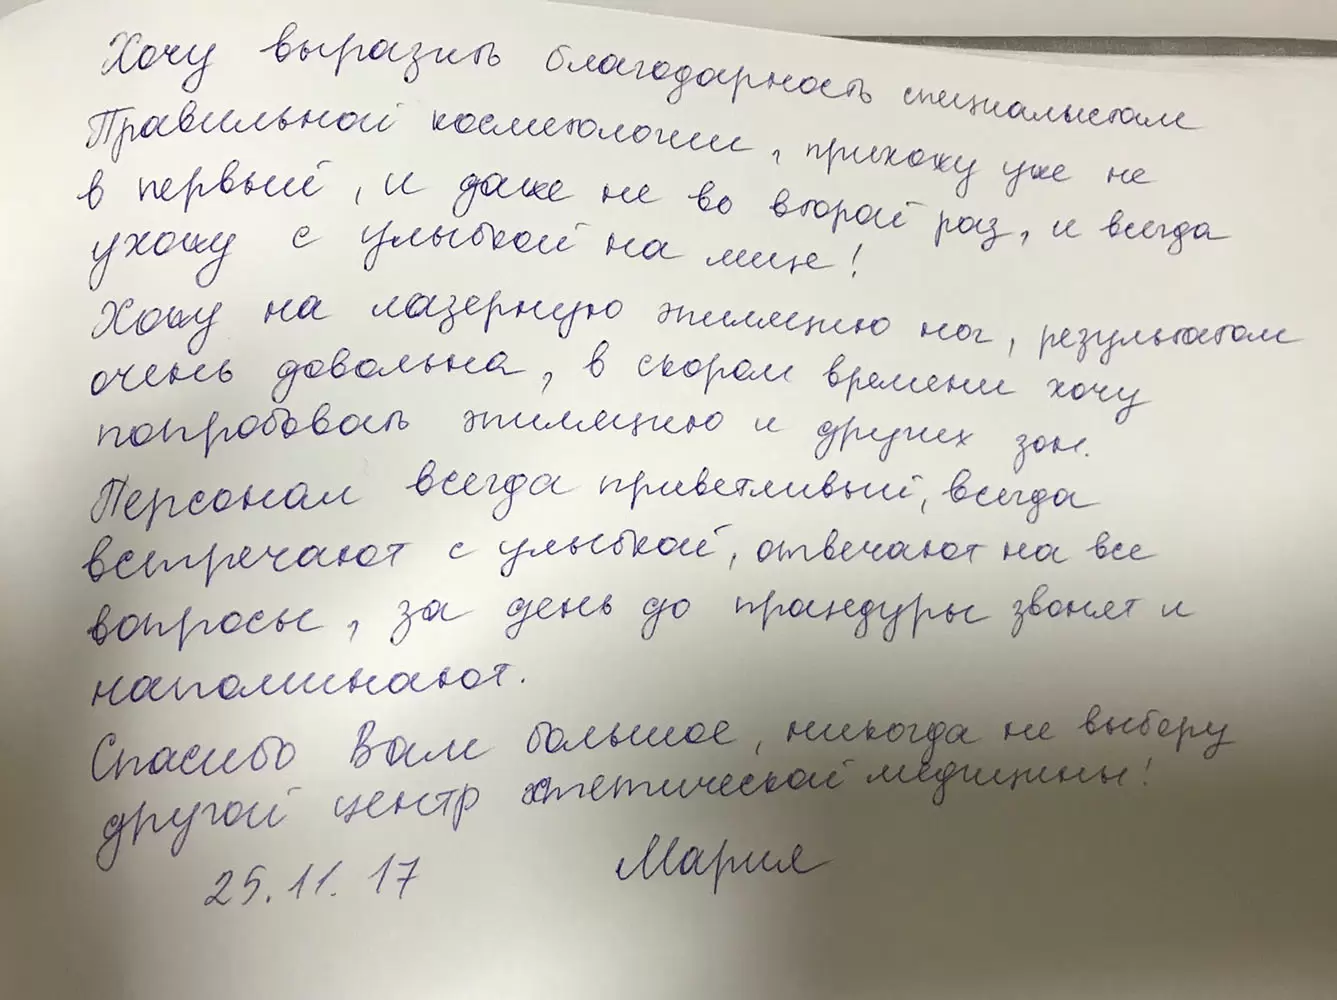 Хочу выразить благодарность специалистам
Правильной косметологии, прихожу уже не
в первый, и даже не во второй раз, и всегда
ухожу с улыбкой на лице!
Хожу на лазерную эпиляцию ног, результатом
очень довольна, в скором времени хочу
попробовать эпиляцию и других зон.
Персонал всегда приветливый, всегда
встречают с улыбкой, отвечают на все
вопросы, за день до процедуры звонят и
напоминают.
Спасибо Вам большое, никогда не выберу
другой центр эстетической медицины!
25.11.17 Мария